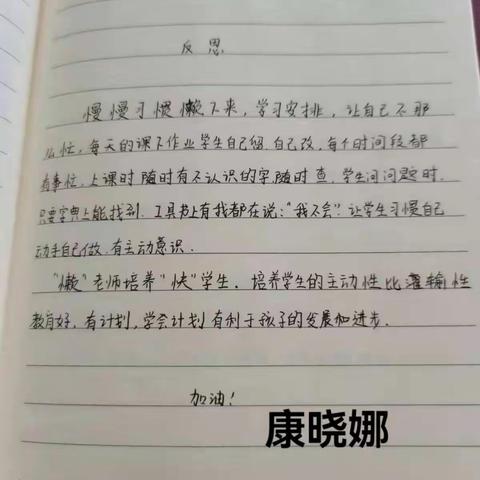 反思
慢慢习惯懒下来，学习安排，让自己不那
么忙，每天的课下作业学生自己留，自己改，每个时间段都
有事忙，上课时随时有不认识的字随时查，学生问问题时，
只要字典上能找到，工具书上有我都在说："我不会"，让学生习惯自己
动手自己做，有主动意识．
"懒"老师培养"快"学生．培养学生的主动性比灌输性
教育好，有计划，学会计划有利于孩子的发展和进步．
加油！
康晓娜